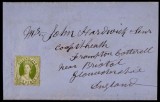 Mrs John Hardwick
Coalpit heath
Frampton Cotterell
near Bristol
Gloucestershire
England